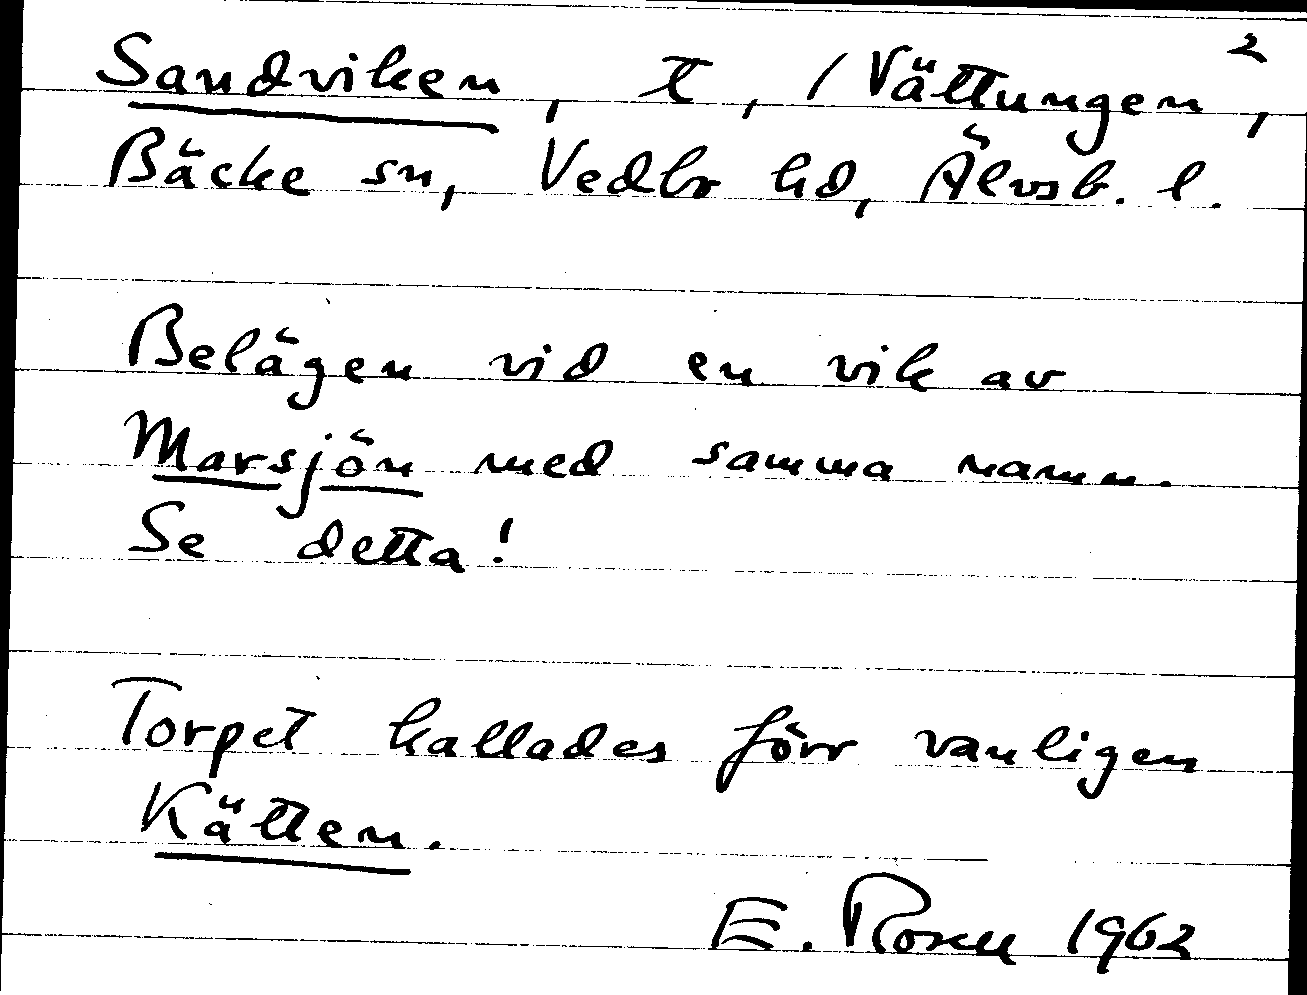 Sandviken, t, / Vättungen 2,
Bäcke sn, Vedbr hd, Älvsb. l.
Belägen vid en vik av
Marsjön med samma namn.
Se detta!
Torpet kallades förr vanligen
Kätten.
E. Rosell 1962